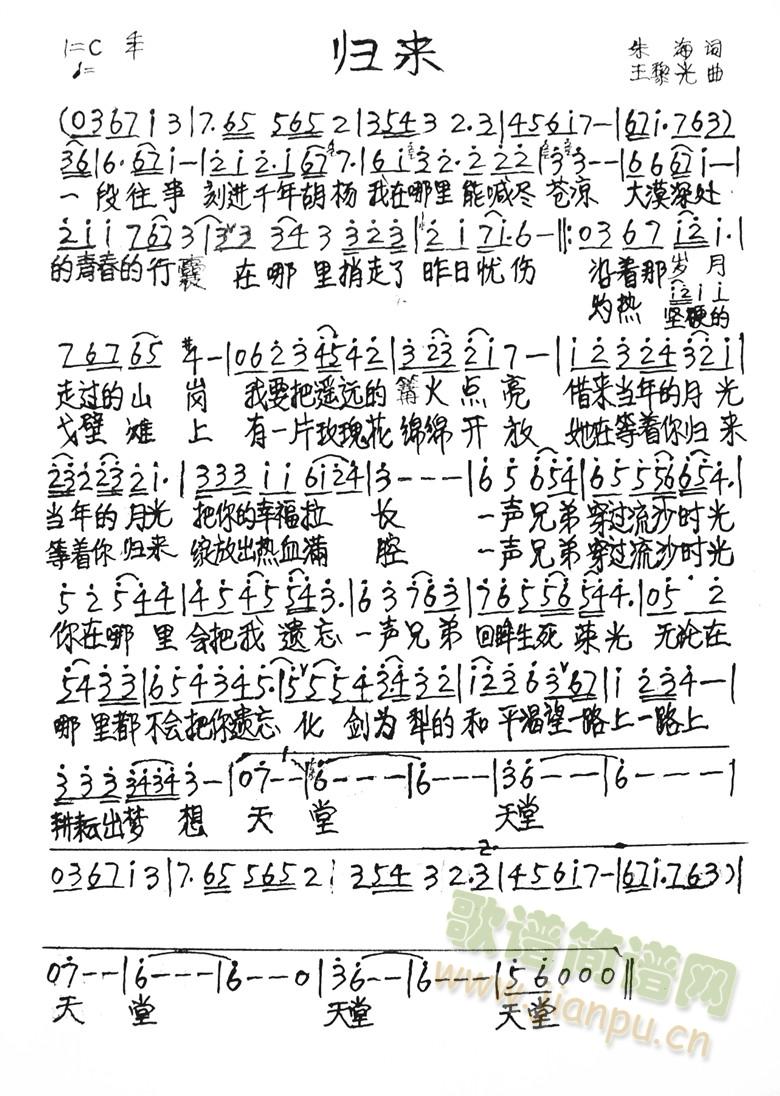 1=C 4/4 归来 朱海 词
♩= 王黎光 曲
(0 3 6 7 i 3 | 7. 6 5 5 6 5 2 | 3 5 4 3 2. 3 | 4 5 6 i 7 - | 6 7 i. 7 6 3)
3 6 | 6. 6 7 i - | 2 i 2. i 6 7 7. | 6 i 3 2. 2 2 2 | 3 3 - - | 6 6 7 i - |
一段往事 刻进千年胡杨 我在哪里能喊尽苍凉 大漠深处
2 i i 7 6 7 3 | 3 3 3 4 3 3 2 3 | 2 i 7 i. 6 - ‖: 0 3 6 7 i 2 i. |
的青春的行囊 在哪里捎走了昨日忧伤 沿着那岁月
灼热 坚硬的
7 6 7 6 5 #4 - | 0 6 2 3 4 5 4 2 | 3 2 3 2 i 7 - | i 2 3 2 4 3 2 i |
走过的山岗 我要把遥远的篝火点亮 借来当年的月光
戈壁滩上 有一片玫瑰花绵绵开放 她在等着你归来
2 3 2 2 3 2 i. | 3 3 3 i i 6 i 2 4 | 3 - - - | 6 5 6 5 4 | 6 5 5 5 6 6 5 4. |
当年的月光 把你的幸福拉长 一声兄弟穿过流沙时光
等着你归来 绽放出热血满腔 一声兄弟穿过流沙时光
5 2 5 4 4 | 4 5 4 5 5 4 3. | 6 3 7 6 3 | 7 6 5 5 6 5 4 4. | 0 5 2
你在哪里会把我遗忘 一声兄弟回眸生死荣光 无论在
5 4 3 3 | 6 5 4 3 4 5. | 5 5 5 4 3 4 3 2 | i 2 3 6 3 6 7 | i 2 3 4 - |
哪里都不会把你遗忘 化剑为犁的和平渴望一路上一路上
3 3 3 3 4 3 4 3 - | 0 7 - - | 6 - - - | 6 - - - | 3 6 - - | 6 - - - |
耕耘出梦想 天堂 天堂
0 3 6 7 i 3 | 7. 6 5 5 6 5 2 | 3 5 4 3 2. 3 | 4 5 6 i 7 - | 6 7 i. 7 6 3) |
0 7 - - | 6 - - - | 6 - - 0 | 3 6 - - | 6 - - - | 5 6 0 0 0 ‖
天堂 天堂 天堂
歌谱简谱网
www.jianpu.cn